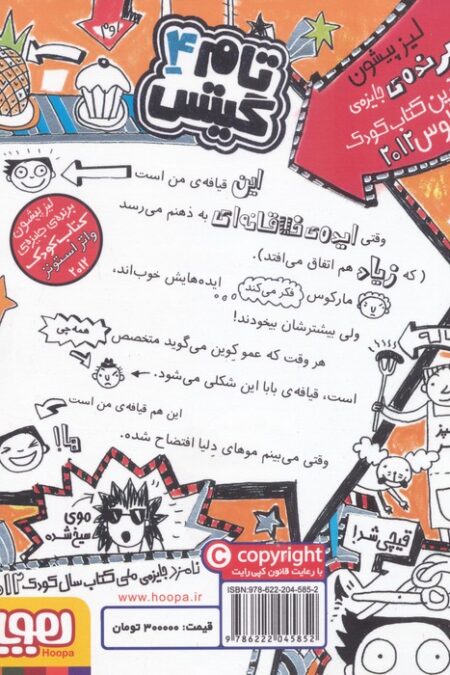 اوم
تام
گیتس
۴
لیز پیشون
برنده‌ی جایزه‌ی
کتاب کودک
۲۰۱۲
این قیافه‌ی من است
وقتی ایده‌ی فوق‌العاده‌ای به ذهنم می‌رسد
(که زیاد هم اتفاق می‌افتد).
مارکوس فکر می‌کند ایده‌هایش خوب‌اند،
ولی بیشترشان بیخودند!
هر وقت که عمو کوین می‌گوید متخصص همه‌چی
است، قیافه‌ی بابا این شکلی می‌شود.
این هم قیافه‌ی من است
وقتی می‌بینم موهای دلیا افتضاح شده.
لیز پیشون
برنده‌ی جایزه‌ی
کتاب کودک
واتراستونز
۲۰۱۲
ها!
موی
سیخ شده
قیچی شد!
نامزد جایزه‌ی ملی کتاب سال کودک ۲۰۱۲
www.hoopa.ir
قیمت: ۳۰۰۰۰۰ تومان
copyright
با رعایت قانون کپی رایت
ISBN: 978-622-204-585-2
9 786222 045852
هوپا
Hoopa